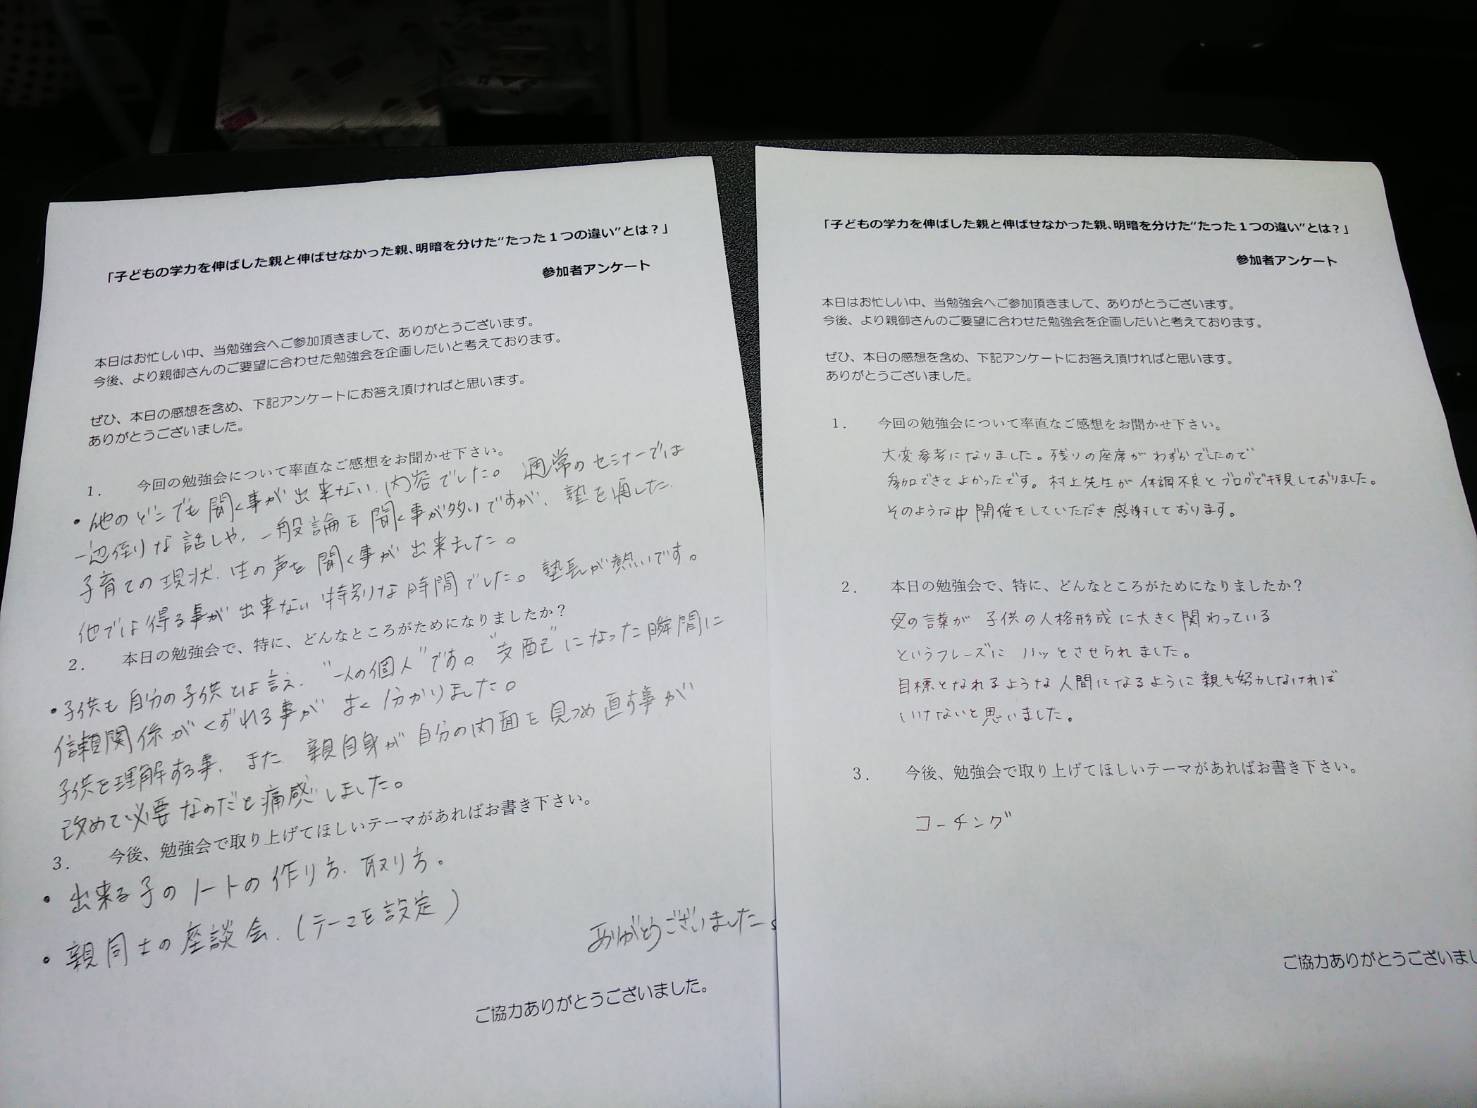 「子どもの学力を伸ばした親と伸ばせなかった親、明暗を分けた"たった１つの違い"とは？」
参加者アンケート
本日はお忙しい中、当勉強会へご参加頂きまして、ありがとうございます。
今後、より親御さんのご要望に合わせた勉強会を企画したいと考えております。
ぜひ、本日の感想を含め、下記アンケートにお答え頂ければと思います。
ありがとうございました。
１． 今回の勉強会について率直なご感想をお聞かせ下さい。
・他のどこでも聞く事が出来ない、内容でした。通常のセミナーでは
一辺倒りな話しや、一般論を聞く事が多いですが、塾を通した
子育ての現状、生の声を聞く事が出来ました。
他では得る事が出来ない特別な時間でした。塾長が熱いです。
２． 本日の勉強会で、特に、どんなところがためになりましたか？
・子供も自分の子供とは言え、"一人の個人"です。"支配"になった瞬間に
信頼関係がくずれる事がよく分かりました。
子供を理解する事、また親自身が自分の内面を見つめ直す事が
改めて必要なのだと痛感しました。
３． 今後、勉強会で取り上げてほしいテーマがあればお書き下さい。
・出来る子のノートの作り方、取り方。
・親同士の座談会、（テーマを設定）
ありがとうございました。
ご協力ありがとうございました。
「子どもの学力を伸ばした親と伸ばせなかった親、明暗を分けた"たった１つの違い"とは？」
参加者アンケート
本日はお忙しい中、当勉強会へご参加頂きまして、ありがとうございます。
今後、より親御さんのご要望に合わせた勉強会を企画したいと考えております。
ぜひ、本日の感想を含め、下記アンケートにお答え頂ければと思います。
ありがとうございました。
１． 今回の勉強会について率直なご感想をお聞かせ下さい。
大変参考になりました。残りの座席がわずかでしたので
参加できてよかったです。村上先生が体調不良とブログで拝見しておりました。
そのような中開催をしていただき感謝しております。
２． 本日の勉強会で、特に、どんなところがためになりましたか？
母の言葉が子供の人格形成に大きく関わっている
というフレーズにハッとさせられました。
目標となれるような人間になるように親も努力しなければ
いけないと思いました。
３． 今後、勉強会で取り上げてほしいテーマがあればお書き下さい。
コーチング
ご協力ありがとうございまし